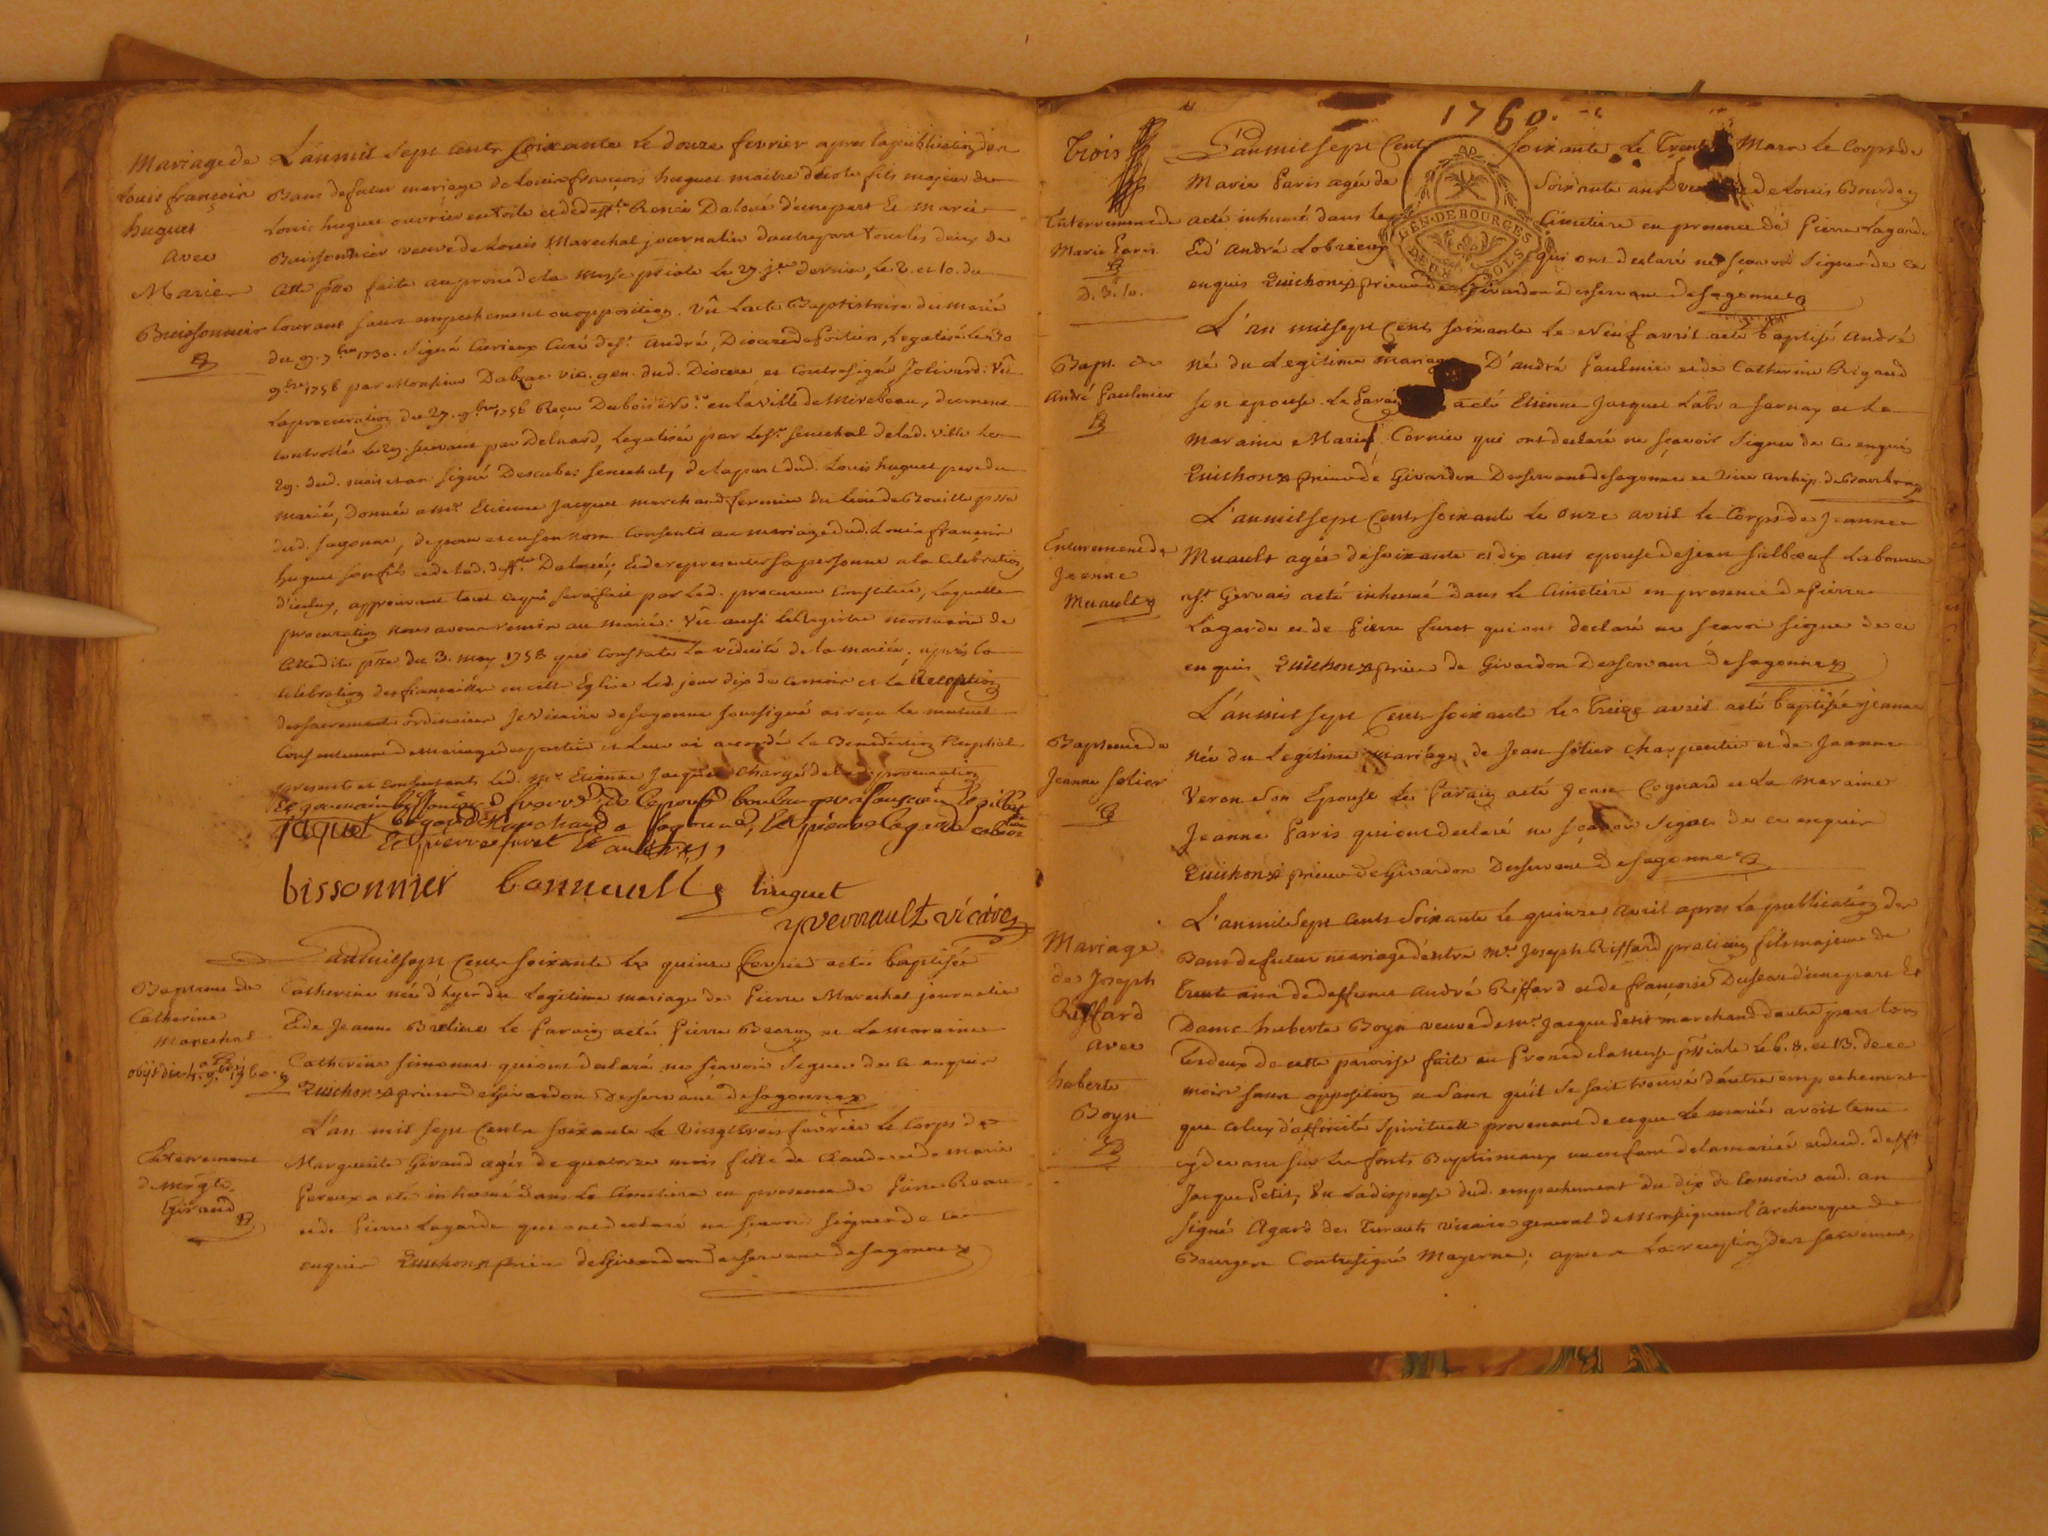 Mariage de
Louis françois
huguet
avec
Marie
Buissonnier
L'an mil sept cents soixante le douze fevrier apres la publication des
Bans de futur mariage de Louis françois huguet maitre d'ecole fils majeur de
Louis huguet ouvrier en toile et de deffte Renée Daloué d'une part Et Marie
Buissonnier veuve de Louis Marechal journalier d'autre part tous les deux de
cette psse faite au prone de la Messe psiale le 27. jer dernier, le 2. et 10. du
courant sans empechement ou opposition. Vû l'acte Baptistaire du marié
du 9. 7bre 1730. signé Curieux Curé de St. André, Diocese de Poitiers, Legalisé le 30
9bre 1756 par Monsieur Dabzac vic. gen. dud. Diocese, et contresigné Jolivard: Vû
la procuration du 27. 9bre 1756 Reçue Dubois Nre en la ville de Mirebeau, duement
controllé le 29. suivant par Delnard, Legalisée par le Sr. senechal de lad. ville le
29. dud. mois et an signé Descubes senechal, de la part dud. Louis huguet pere du
marié, donnée a Mr. Etienne Jacquet marchand fermier du lieu de Bouille psse
dud. sagonne, de pour et en son nom consentir au mariage dud. Louis francois
huguet son fils et de lad. deffte Daloué, Et de representer sa personne a la celebration
d'iceluy, approuvant tout ce qui sera fait par led. procureur constitué, laquelle
procuration nous avons remise au marié: Vû aussi le Registre mortuaire de
cette dite psse du 3. may 1758 qui constate la viduité de la mariée, après la
celebration des fiançailles en cette Eglise led. jour dix de ce mois et la Reception
des sacrements ordinaires Je vicaire de sagonne soussigné ai reçu le mutuel
consentement de mariage des parties et leur ai accordé la Benediction Nuptiale
presents et consentants led. Mr. Etienne Jacquet chargé de lad. procuration
jaquet
Et pierre furet Et autres,
bissonnier bonneault huguet
yvernault vicaire
Bapteme de
Catherine
Marechal
L'an mil sept cents soixante le quinze fevrier a eté baptisée
Catherine née d'hyer du legitime mariage de Pierre Marechal journalier
Et de Jeanne Bredière le Parain a eté Pierre Bearoy et la maraine
Catherine simonnet qui ont declaré ne sçavoir signer de ce enquis
Guichon prieur de Givardon Desservant de sagonne
Enterrement
de Mrgte.
Giraud
L'an mil sept cents soixante le vingt trois fevrier le corps de
Marguerite Giraud agée de quatorze mois fille de Claude et de marie
Pereux a eté inhumé dans le Cimetiere en presence de Pierre Beau
et de Pierre Lagarde qui ont declaré ne sçavoir signer de ce
enquis Guichon prieur de Givardon desservant de sagonne
1760.
trois
Enterrement de
Marie Paris
d. 3. l0.
L'an mil sept cents soixante le trente Mars le corps de
Marie Paris agée de soixante ans de Louis Bourdey
a eté inhumé dans le Cimetiere en presence de Pierre Lagarde
Et d'André Lobrieux qui ont declaré ne sçavoir signer de ce
enquis Guichon prieur de Givardon Desservant de sagonne
GEN. DE BOURGES
DEUX SOLS
Bapt. de
André Paulmier
L'an mil sept cents soixante le Neuf avril a eté baptisé André
né du legitime mariage D'andré Paulmier et de Catherine Rigaud
son epouse. Le Parain a eté Etienne Jacquet Labr a sornay et la
maraine Marie Cornier qui ont declaré ne sçavoir signer de ce enquis
Guichon prieur de Givardon Desservant de sagonne et vice archip. de Bourbon
Enterrement de
Jeanne
Muault
L'an mil sept cents soixante le onze avril le Corps de Jeanne
Muault agée de soixante et dix ans epouse de jean salboeuf Laboureur
a St Gervais a eté inhumé dans le Cimetiere en presence de Pierre
Lagarde et de Pierre furet qui ont declaré ne scavoir signer de ce
enquis Guichon prieur de Givardon Desservant de sagonne
Bapteme de
Jeanne Solier
L'an mil sept cents soixante le treize avril a eté baptisée jeanne
née du Legitime mariage de Jean solier charpentier et de Jeanne
Veron son Epouse Le Parain a eté Jean Cognard et la maraine
Jeanne Paris qui ont declaré ne sçavoir signer de ce enquis
Guichon prieur de Givardon Desservant de sagonne
Mariage
de Joseph
Riffard
avec
huberte
Boyn
L'an mil sept cents soixante le quinze avril apres la publication des
Bans de futur mariage d'entre Mr. Joseph Riffard praticien fils majeur de
trente ans de deffunct André Riffard et de françoise Duseau d'une part Et
Dame huberte Boyn veuve de Mr. Jacque Petit marchand d'autre part tous
les deux de cette paroisse fait au prone de la messe psiale le 6. 8. et 13. de ce
mois sans opposition et sans qu'il se soit trouvé d'autre empechement
que celuy d'affinité spirituelle provenant de ce que le marié avoit tenu
cy devant sur les fonts Baptismaux un enfant de la mariée et dud. defft
Jacque Petit, Vu la dispense dud. empechement du dix de ce mois aud. an
signé Agard des Turauts vicaire general de Monseigneur l'archeveque de
Bourges Contresigné Mayerne; apres la reception des sacrements